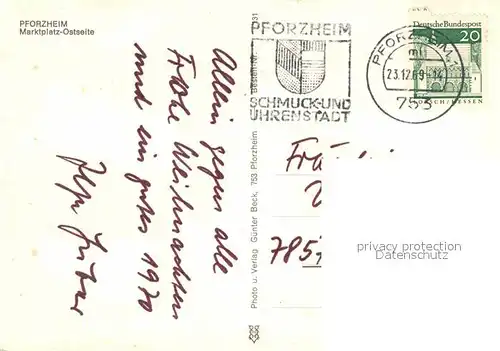 PFORZHEIM
Marktplatz-Ostseite
Allein gegen alle
Frohe Weihnachten
und ein gutes 1970
Photo u. Verlag Günter Beck, 753 Pforzheim
PFORZHEIM
SCHMUCK-UND
UHRENSTADT
PFORZHEIM
23.12.69-14
753
Deutsche Bundespost
20
LORSCH/HESSEN
785
privacy protection
Datenschutz